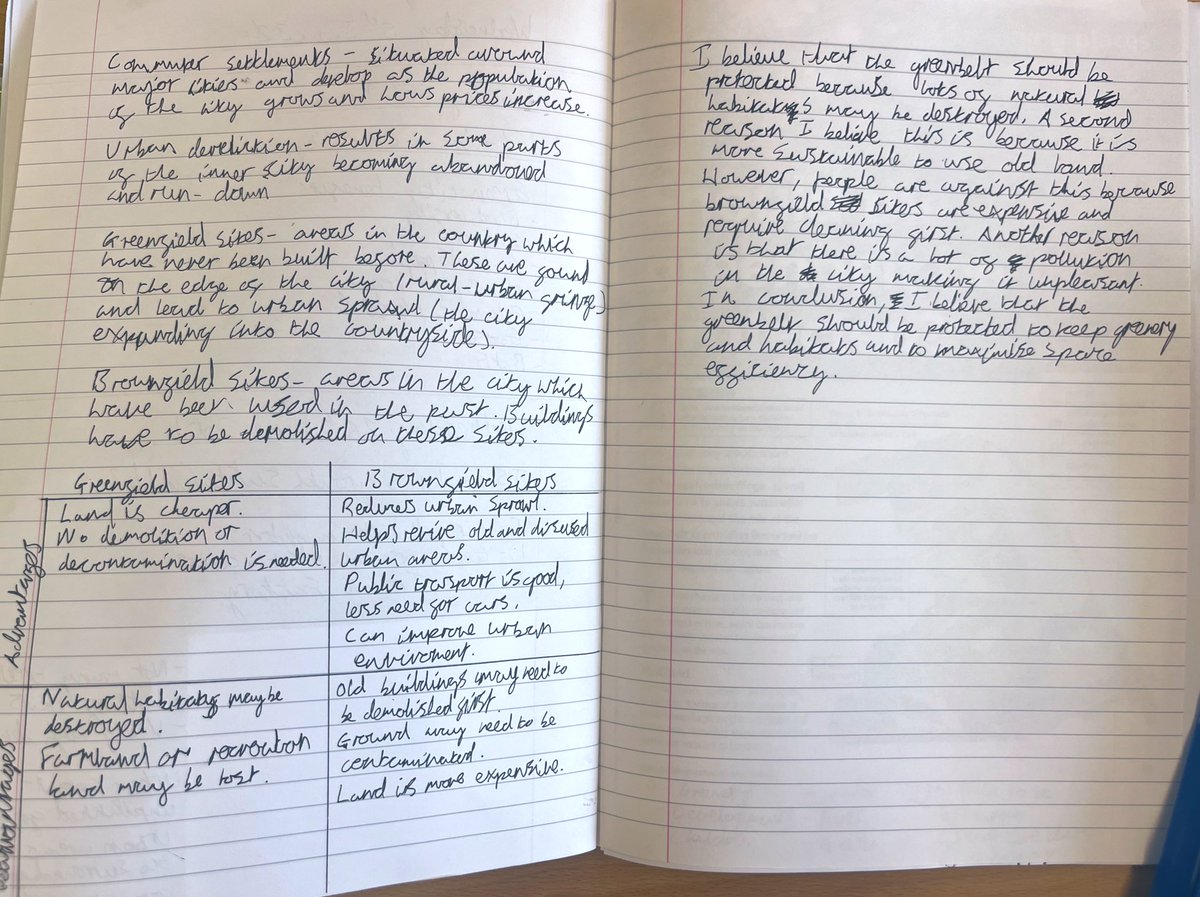 Commuter settlements - situated around
major cities and develop as the population
of the city grows and hows prices increase.
Urban dereliction - results in some parts
of the inner city becoming abandoned
and run-down
Greenfield sites - areas in the country which
have never been built before. These are found
on the edge of the city (rural-urban fringe)
and lead to urban sprawl (the city
expanding into the countryside).
Brownfield sites - areas in the city which
have been used in the past. Buildings
have to be demolished on these sites.
Greenfield sites
Brownfield sites
Advantages
Land is cheaper.
No demolition or
decontamination is needed.
Reduces urban sprawl.
Helps revive old and disused
urban areas.
Public transport is good,
less need for cars.
Can improve urban
enviroment.
Natural habitats may be
destroyed.
Farmland or recreation
land may be lost.
Old buildings may need to
be demolished first.
Ground may need to be
contaminated.
Land is more expensive.
I believe that the greenbelt should be
protected because lots of natural
habitats may be destroyed. A second
reason I believe this is because it is
more sustainable to use old land.
However, people are against this because
brownfield sites are expensive and
require cleaning first. Another reason
is that there is a lot of pollution
in the city making it unpleasant.
In conclusion, I believe that the
greenbelt should be protected to keep greenery
and habitats and to maximise space
efficiency.